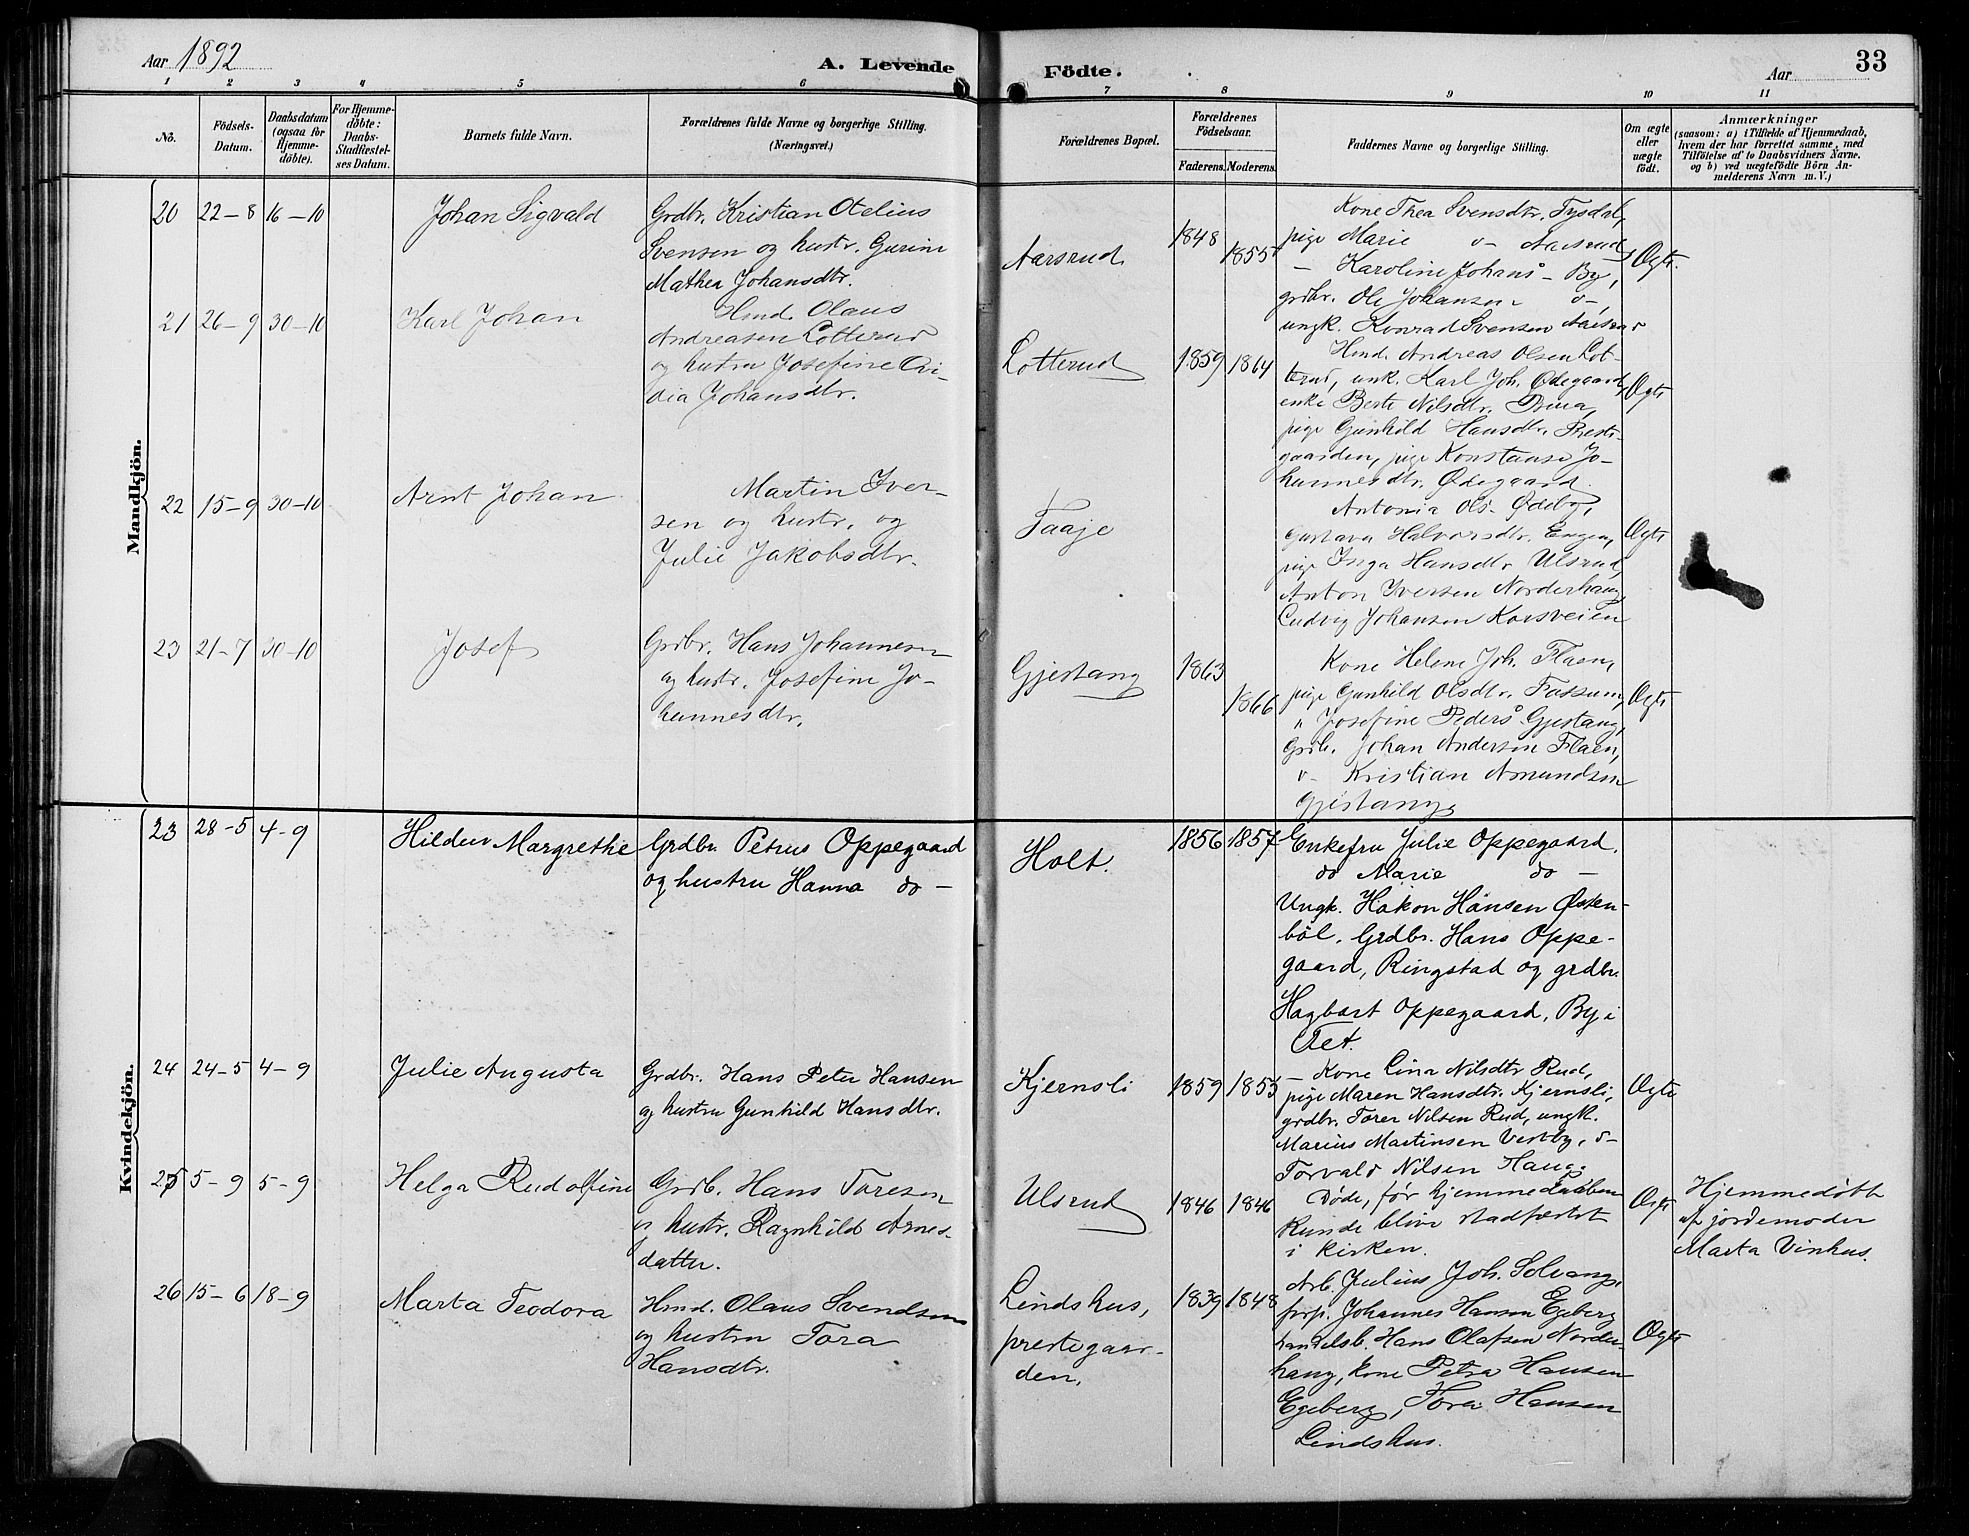 Aar 1892
A. Levende Födte.
Aar
33
1 2 3 4 5 6 7 8 9 10 11
No.
Födsels-Datum.
Daabsdatum (ogsaa for Hjemme-döbte).
For Hjemme-döbte: Daabs-Stadfæstel-ses Datum.
Barnets fulde Navn.
Forældrenes fulde Navne og borgerlige Stilling.
(Næringsvei.)
Forældrenes Bopæl.
Forældrenes Födselsaar.
Faderens. Moderens.
Faddernes Navne og borgerlige Stilling.
Om ægte eller uægte födt.
Anmærkninger
(saasom: a) i Tilfælde af Hjemmedaab,
hvem der har forrettet samme, med
Tilföielse af to Daabsvidners Navne,
og b) ved uægtefödte Börn An-
melderens Navn m. V.)
Mandkjön.
20 22-8 16-10 Johan Sigvald
Grdbr. Kristian Otelius
Svensen og hustr. Gurine
Mathea Johansdtr.
Aarsrud
1848 1855
Kone Thea Svensdtr. Tysdal,
pige Marie o- Aarsrud,
- Karoline Johans- By,
grdbr. Ole Johansen o-,
ungk. Konrad Svensen Aarsrud
Ægte.
21 26-9 30-10 Karl Johan
Hmd. Olaus
Andreasen Lotterud
og hustru Josefine
Johansdtr.
Lotterud
1859 1864
Hmd. Andreas Olsen Lot-
terud, unk. Karl Joh. Ødegaard,
enke Berte Nilsdtr.
pige Gunhild Hansdtr. Preste-
gaarden, pige Konstanse Jo-
hannesdtr. Ødegaard.
Ægte
22 15-9 30-10 Arnt Johan
Martin Iver-
sen og hustr. og
Julie Jakobsdtr.
Taaje
Antonia Ols- Ødeby,
Gustava Halvorsdtr. Engen,
pige Inga Hansdtr. Ulsrud,
Anton Iversen Norderhaug,
Ludvig Johansen Korsveien
Ægte
23 21-7 30-10 Josef
Grdbr. Hans Johannesen
og hustr. Josefine Jo-
hannesdtr.
Gjestang
1863 1866
Kone Helene Joh. Flaen,
pige Gunhild Olsdtr. Fossum,
" Josefine Peders- Gjestang,
Grdb. Johan Andersen Flaen,
o- Kristian Amundsen
Gjestang.
Ægte
Kvindekjön.
23 28-5 4-9 Hildur Margrethe
Grdbr. Petrus Oppegaard
og hustru Hanna do -
Holt.
1856 1857
Enkefru Julie Oppegaard.
do Marie do -
Ungk. Håkon Hansen Østen-
böl. Grdbr. Hans Oppe-
gaard, Ringstad og grdbr.
Hagbart Oppegaard, By i
Fet.
24 24-5 4-9 Julie Augusta
Grdbr. Hans Peter Hansen
og hustru Gunhild Hansdtr.
Kjernsli
1859 1855
- Kone Lina Nilsdtr Rud,
pige Maren Hansdtr. Kjernsli,
grdbr. Torer Nilsen Rud, ungk.
Marius Martinsen Vestby, o-
Torvald Nilsen Haug.
Ægte
25 5-9 5-9 Helga Rudolfine
Grdb. Hans Toresen
og hustr. Ragnhild Arnes-
datter.
Ulsrud
1846 1846
Døde, før hjemmedaaben
kunde blive stadfæstet
i kirken.
Ægte
Hjemmedöbt
af jordemoder
Marta Vinhus.
26 15-6 18-9 Marta Teodora
Hmd. Olaus Svendsen
og hustru Tora
Hansdtr.
Lindshus,
prestegaar-
den.
1839 1848
Arb. Julius Joh. Solvang,
forp. Johannes Hansen Egeberg
handelsb. Hans Olafsen Norder-
haug, kone Petra Hansen
Egeberg, Tora Hansen
Lindshus.
Ægte